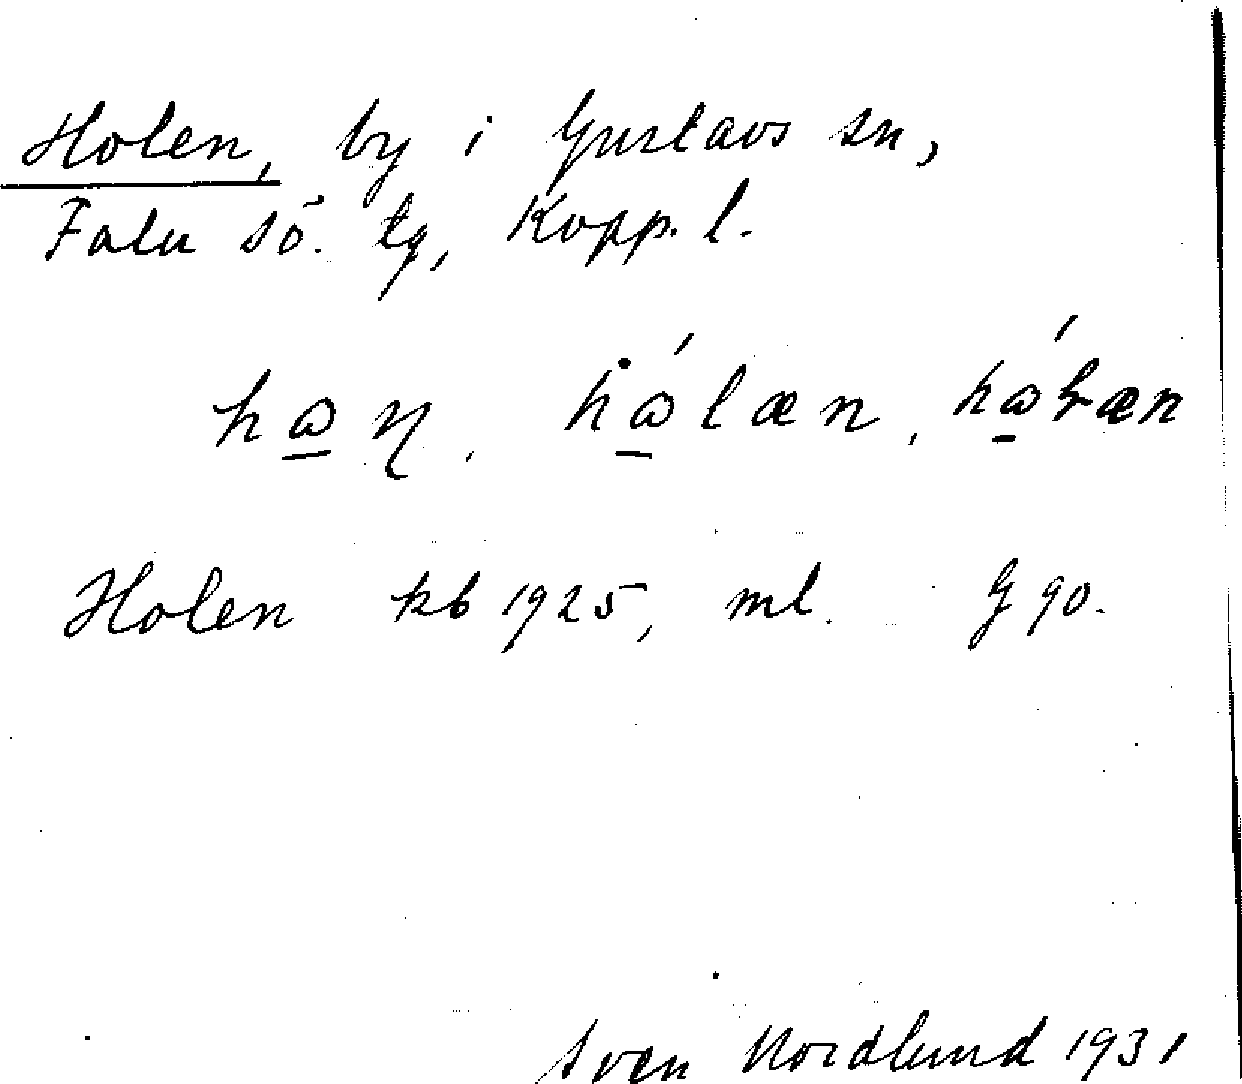 Holen, by i Gustavs sn,
Falu sö. tg, Kopp. l.
hɷɳ, hɷ́læn, hɷ́ɽæn
Holen kb 1925, ml. G 90.
Sven Nordlund 1931